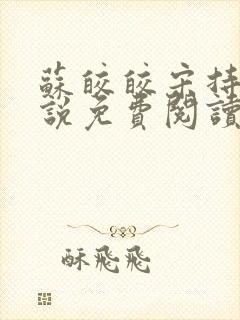 蘇皎皎宋持
說免費閱讀
酥飛飛